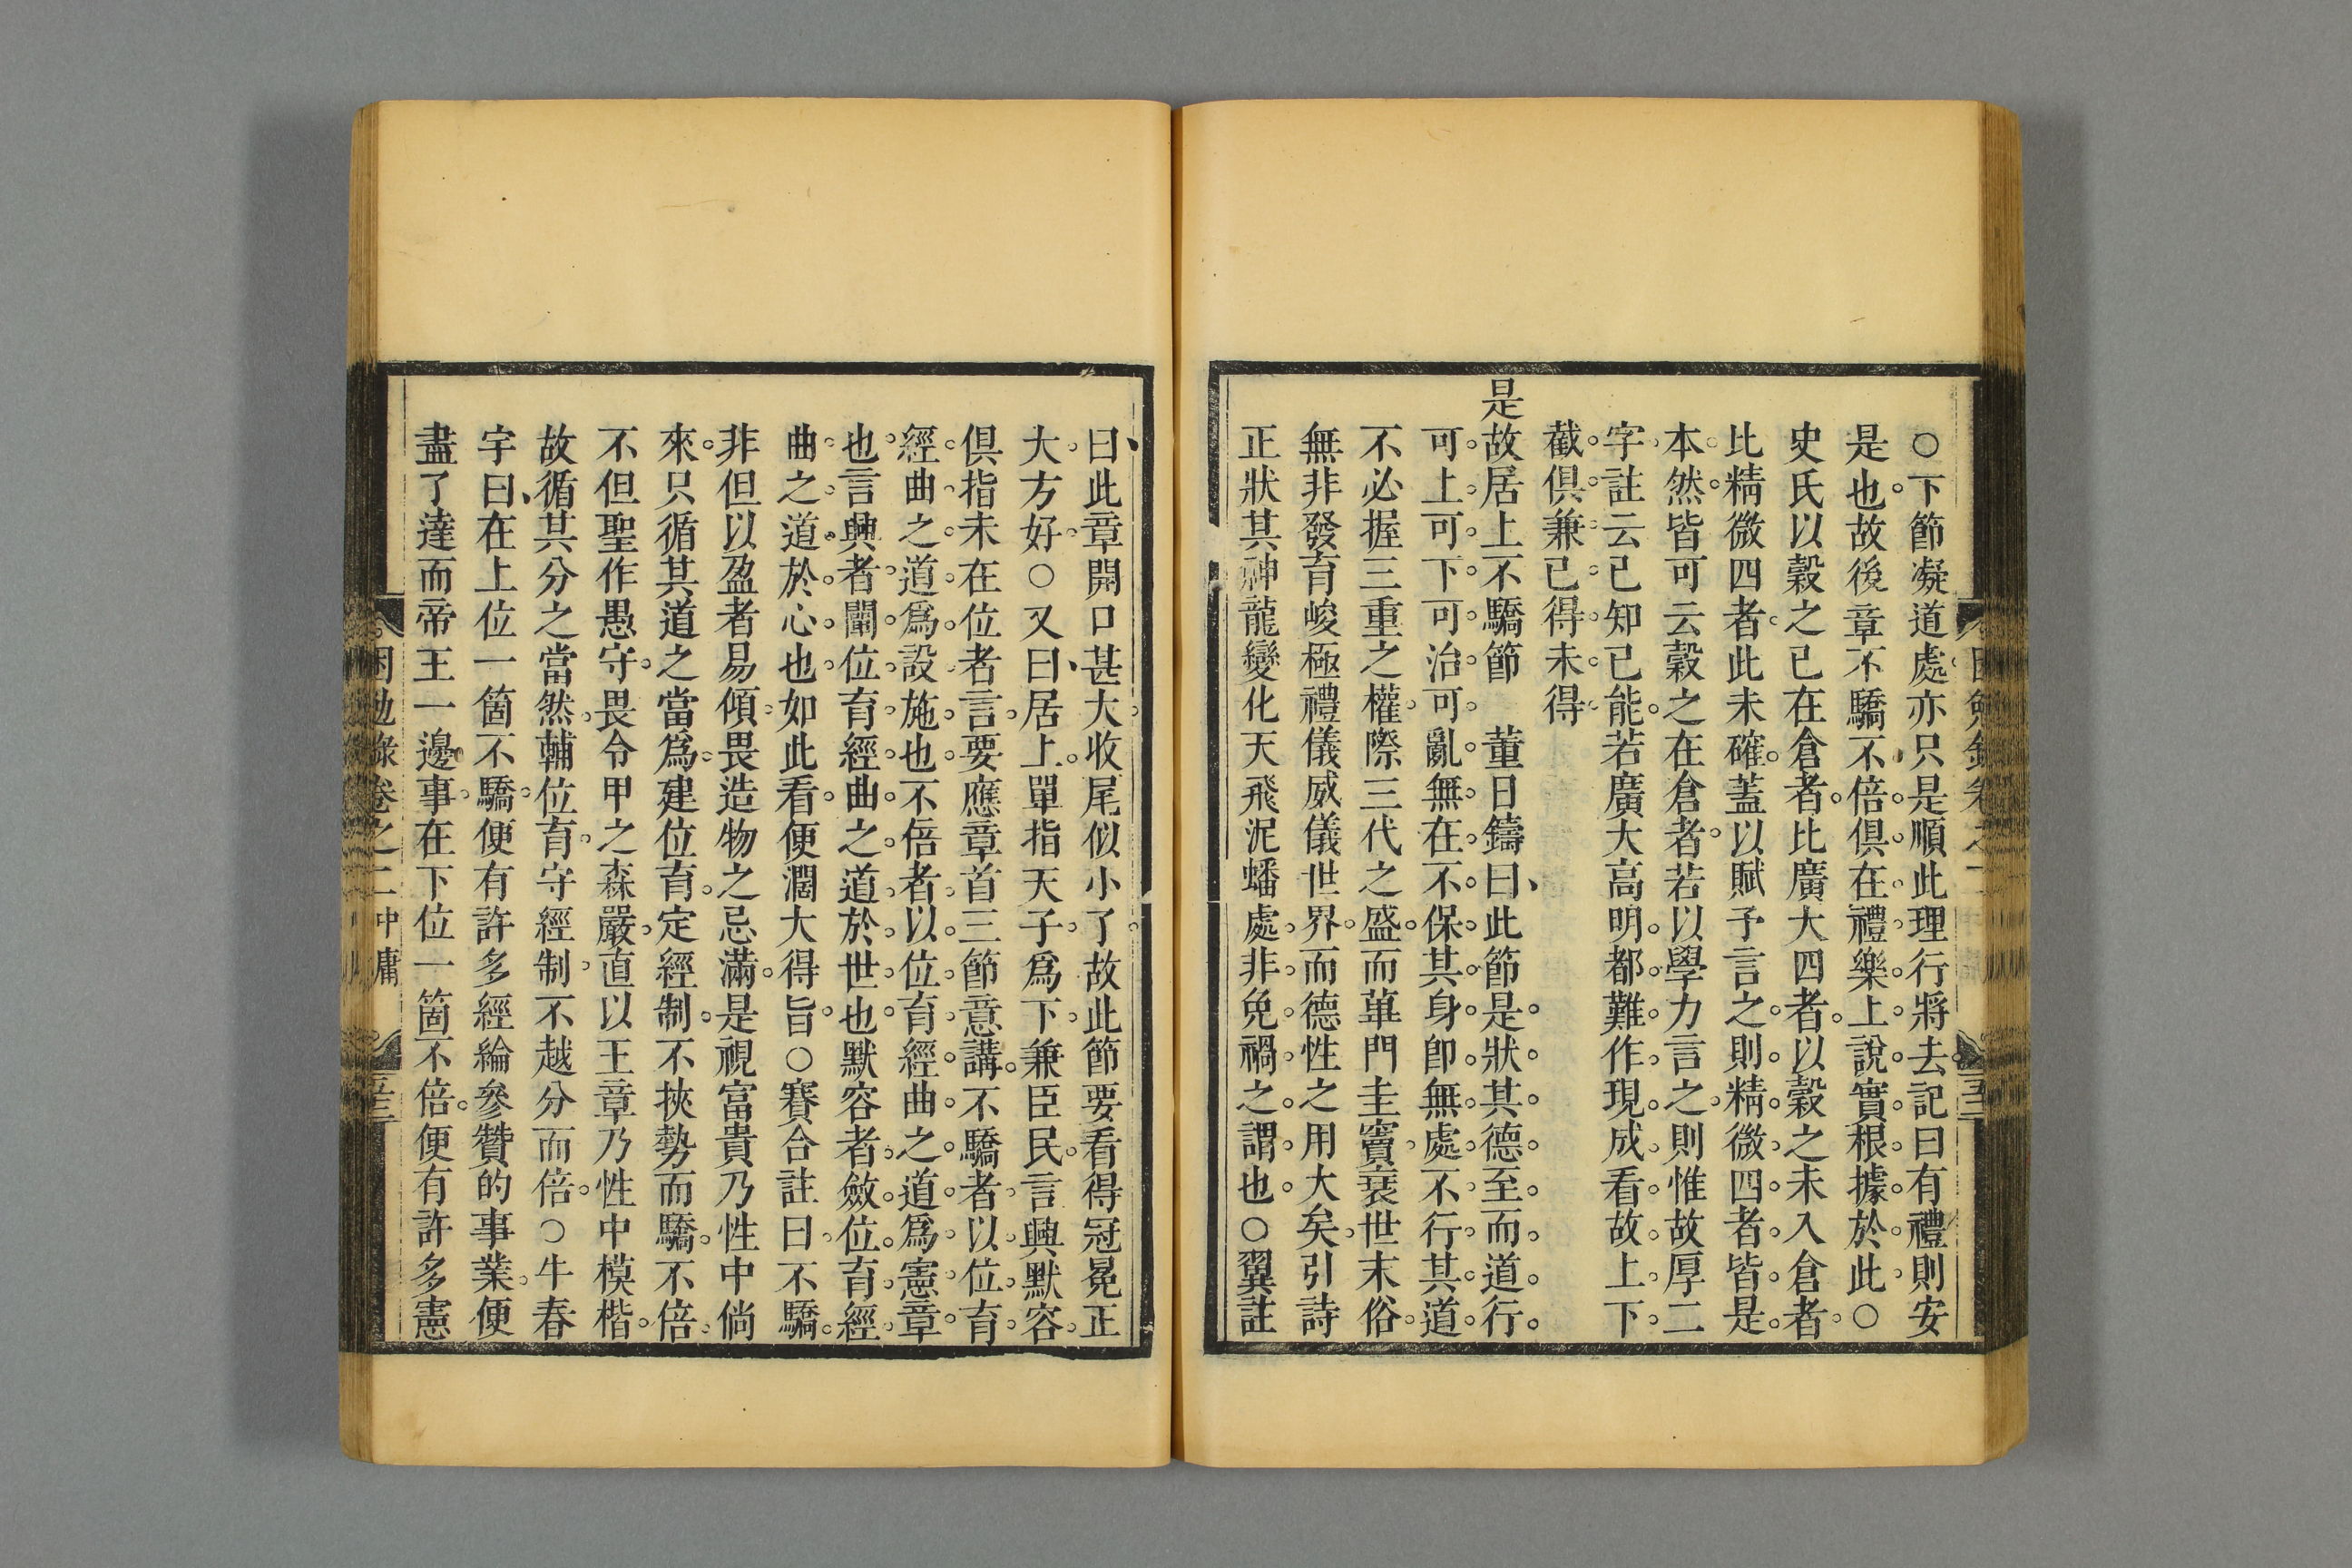 ○下節凝道處亦只是順此理行將去記曰有禮則安
是也故後章不驕不倍俱在禮樂上說實根據於此○
史氏以穀之已在倉者比廣大四者以穀之未入倉者
比精微四者此未確蓋以賦予言之則精微四者皆是
本然皆可云穀之在倉者若以學力言之則惟故厚二
字註云已知已能若廣大高明都難作現成看故上下
截俱兼已得未得
是故居上不驕節　董日鑄曰此節是狀其德至而道行
可上可下可治可亂無在不保其身卽無處不行其道
不必握三重之權際三代之盛而蓽門圭竇衰世末俗
無非發育峻極禮儀威儀世界而德性之用大矣引詩
正狀其神龍變化天飛泥蟠處非免禍之謂也○翼註
曰此章開口甚大收尾似小了故此節要看得冠冕正
大方好○又曰居上單指天子爲下兼臣民言興默容
俱指未在位者言要應章首三節意講不驕者以位育
經曲之道爲設施也不倍者以位育經曲之道爲憲章
也言興者闡位育經曲之道於世也默容者斂位育經
曲之道於心也如此看便濶大得旨○賽合註曰不驕
非但以盈者易傾畏造物之忌滿是視富貴乃性中倘
來只循其道之當爲建位育定經制不挾勢而驕不倍
不但聖作愚守畏令甲之森嚴直以王章乃性中模楷
故循其分之當然輔位育守經制不越分而倍○牛春
宇曰在上位一箇不驕便有許多經綸參贊的事業便
盡了達而帝王一邊事在下位一箇不倍便有許多憲
困勉錄卷之二 中庸 五三